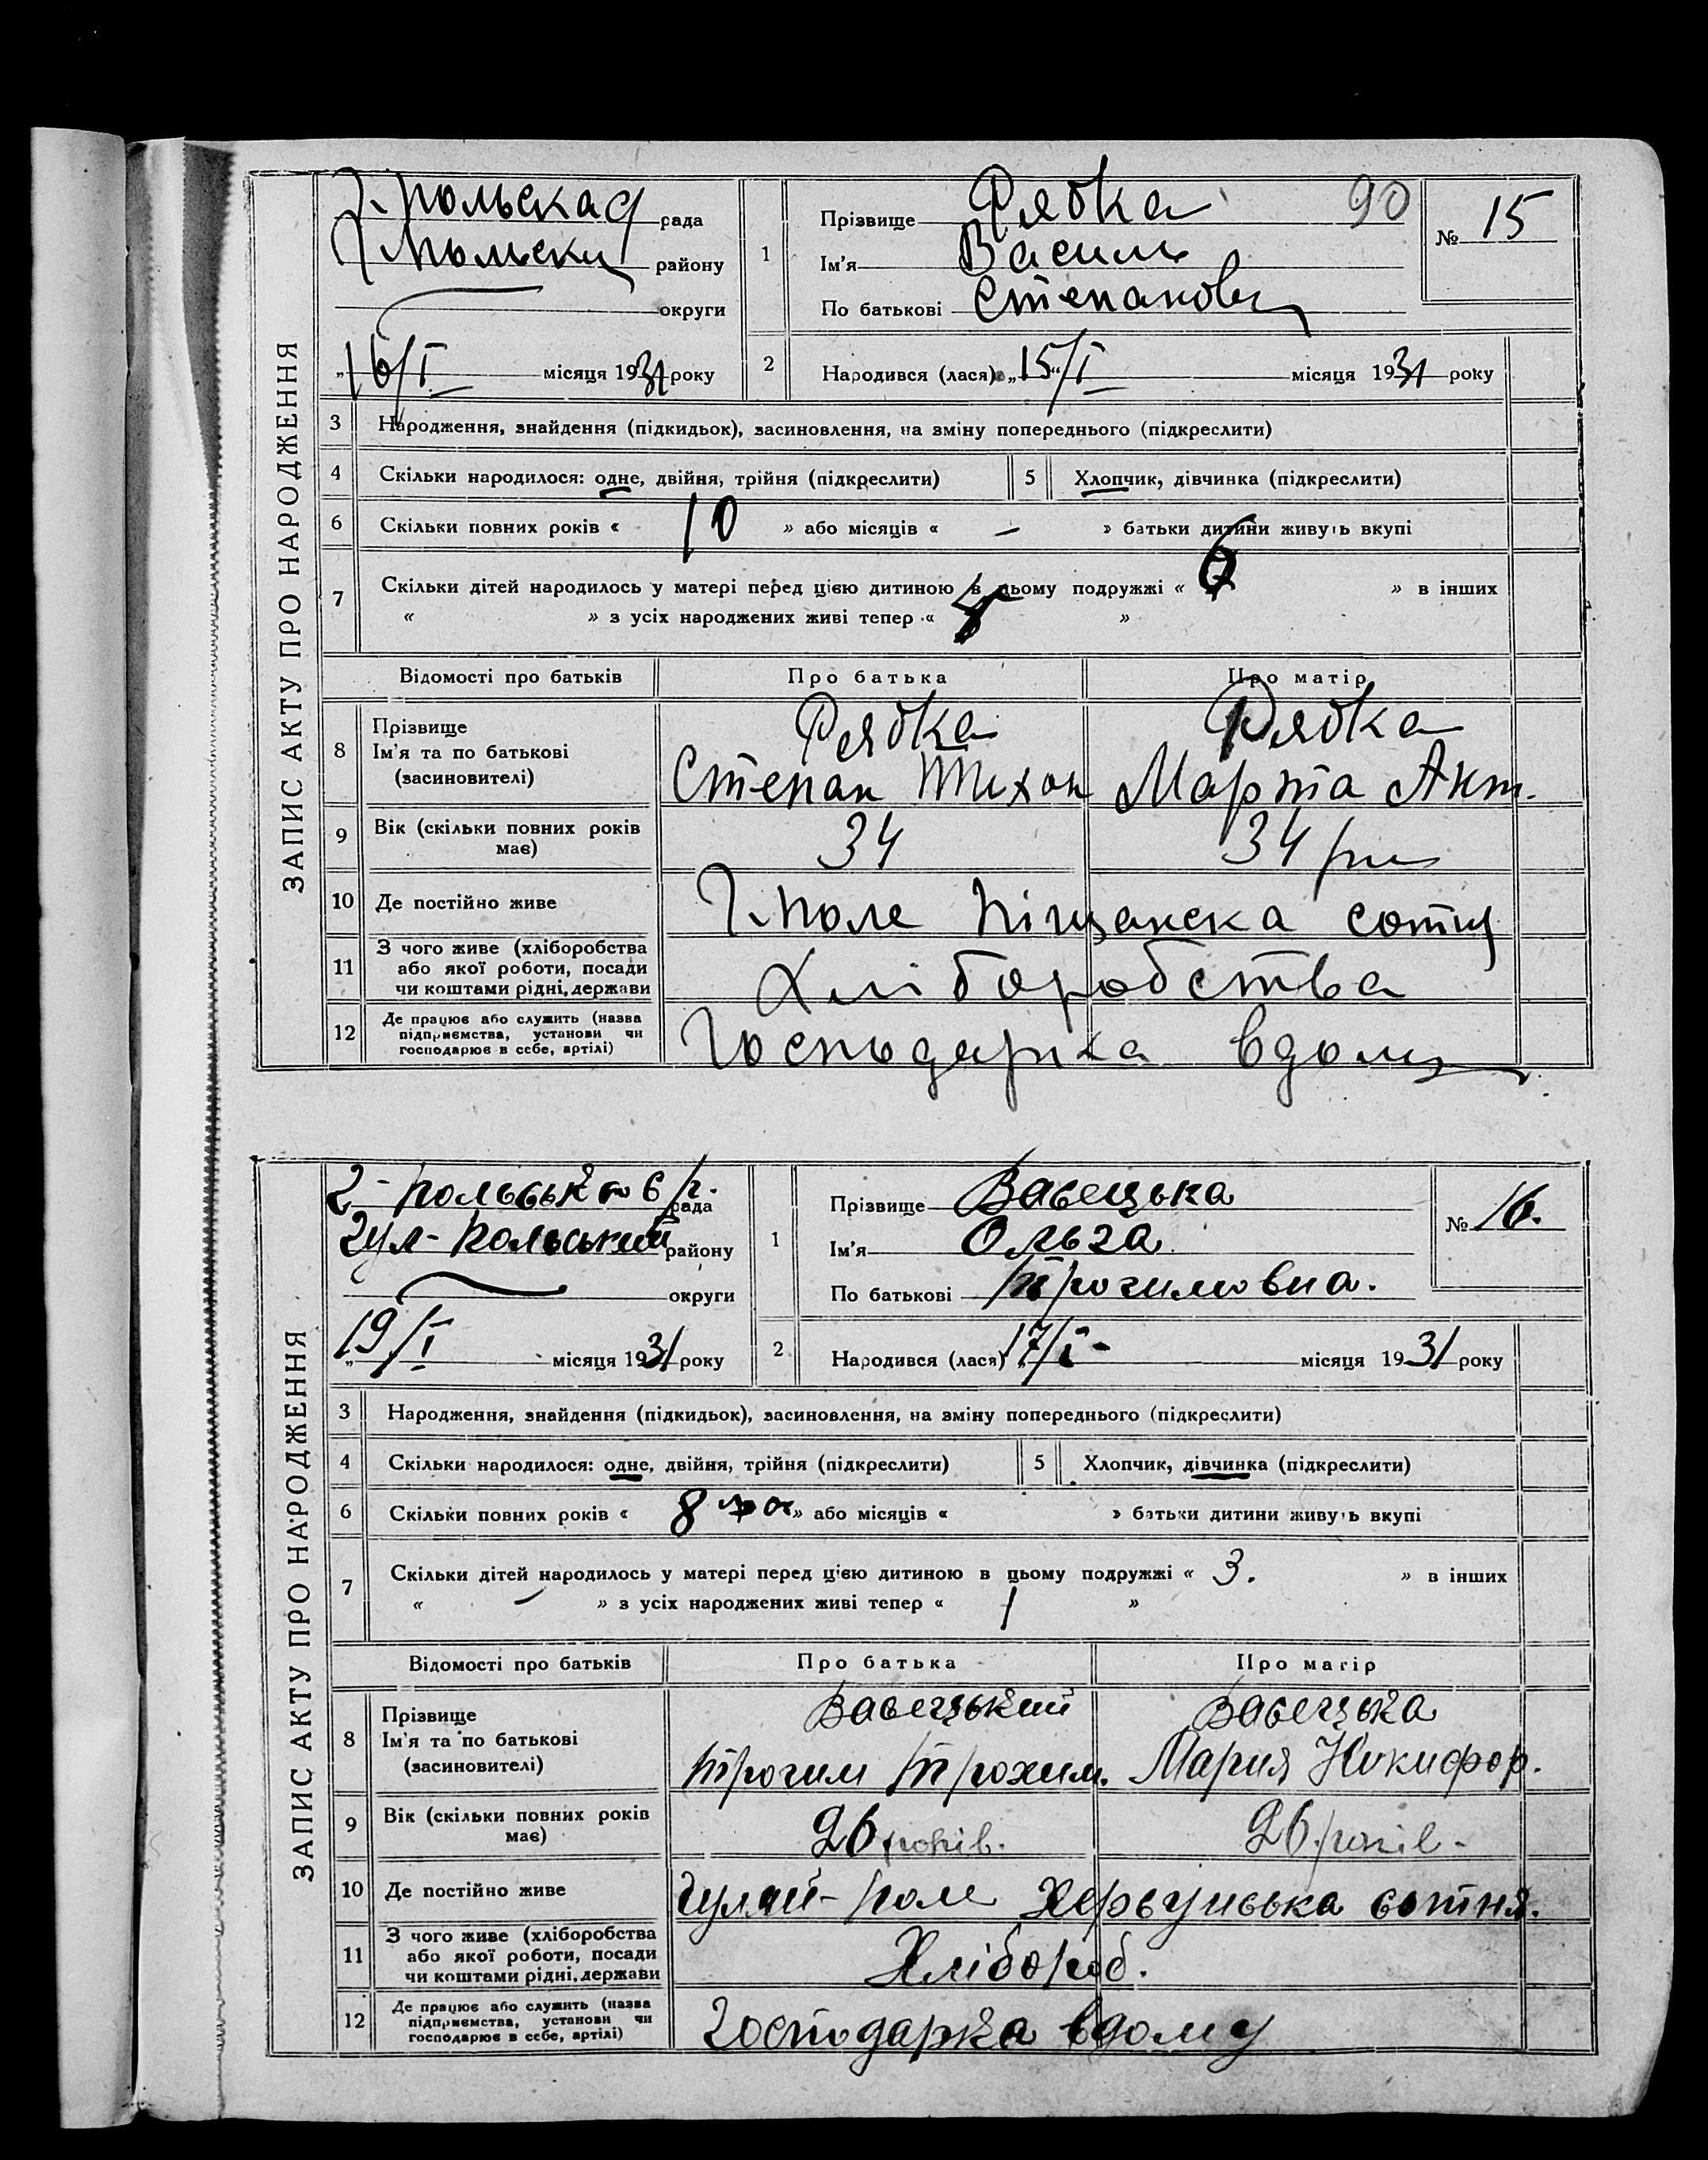 ЗАПИС АКТУ ПРО НАРОДЖЕННЯ
Г. Польская рада
Г Польски району
округи
„16/I місяця 1931 року
1
Прізвище Рябка
90
Ім'я Василь
По батькові Степанович
№ 15
2 Народився (лася) „15“/I місяця 1931 року
3 Народження, знайдення (підкидьок), засиновлення, на зміну попереднього (підкреслити)
4 Скільки народилося: одне, двійня, трійня (підкреслити) 5 Хлопчик, дівчинка (підкреслити)
6 Скільки повних років « 10 » або місяців « – » батьки дитини живуть вкупі
7 Скільки дітей народилось у матері перед цією дитиною в цьому подружжі « » в інших
« » з усіх народжених живі тепер « »
Відомості про батьків Про батька Про матір
8 Прізвище Рябка Рябка
Ім'я та по батькові Степан Тихон Марта Ант.
(засиновителі)
9 Вік (скільки повних років має) 34 34
10 Де постійно живе Г. Поле Піщанска сотня
11 З чого живе (хліборобства або якої роботи, посади чи коштами рідні, держави Хліборобства
12 Де працює або служить (назва підприємства, установи чи господарює в себе, артілі) Господарка вдому
ЗАПИС АКТУ ПРО НАРОДЖЕННЯ
рада
Гул-Польський району
округи
„19/I місяця 1931 року
1
Прізвище Вавецька
Ім'я Ольга
По батькові Трочимовна.
№ 16.
2 Народився (лася) 17/I- місяця 1931 року
3 Народження, знайдення (підкидьок), засиновлення, на зміну попереднього (підкреслити)
4 Скільки народилося: одне, двійня, трійня (підкреслити) 5 Хлопчик, дівчинка (підкреслити)
6 Скільки повних років « 8 » або місяців « » батьки дитини живуть вкупі
7 Скільки дітей народилось у матері перед цією дитиною в цьому подружжі « 3. » в інших
« – » з усіх народжених живі тепер « 1 »
Відомості про батьків Про батька Про матір
8 Прізвище Вавецький Вавецька
Ім'я та по батькові Трочим Трохим. Мария Никифор.
(засиновителі)
9 Вік (скільки повних років має) 26 років. 26 років-
10 Де постійно живе Гуляй-Поле Херсунська сотня.
11 З чого живе (хліборобства або якої роботи, посади чи коштами рідні, держави Хлібороб.
12 Де працює або служить (назва підприємства, установи чи господарює в себе, артілі) Господарка вдому